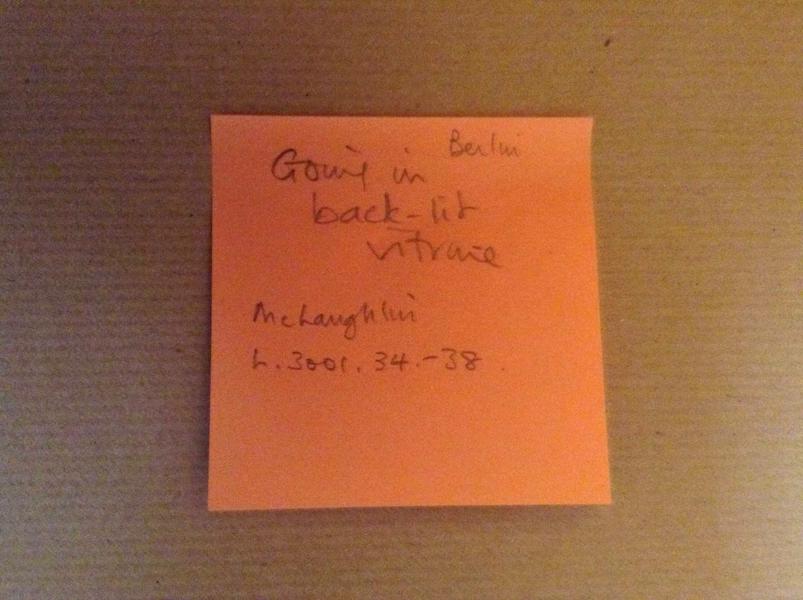 Berlin
Going in
back-lit
vitrine
McLaughlin
L.3001.34.-38.